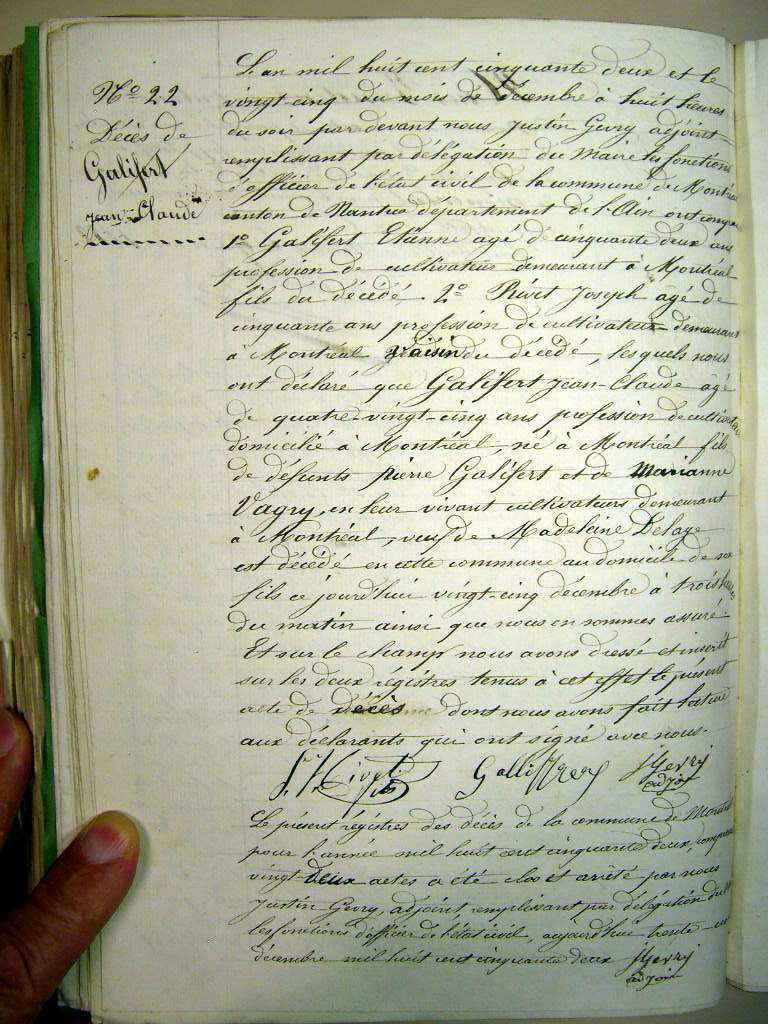 N.º 22
Décès de
Galifert
Jean-Claude
L'an mil huit cent cinquante deux et le
vingt-cinq du mois de décembre à huit heures
du soir par devant nous Justin Gevry adjoint
remplissant par délégation du Maire les fonctions
d'officier de l'état civil de la commune de Montréal
canton de Nantua département de l'Ain ont comparu
1.º Galifert Etienne agé de cinquante deux ans
profession de cultivateur demeurant à Montréal
fils du décédé. 2.º Rivet Joseph agé de
cinquante ans profession de cultivateur demeurant
à Montréal voisin du décédé, lesquels nous
ont déclaré que Galifert Jean-Claude âgé
de quatre-vingt-cinq ans profession de cultivateur
domicilié à Montréal, né à Montréal fils
de défunts pierre Galifert et de Marianne
Vagry, en leur vivant cultivateurs demeurant
à Montréal, veuf de Madeleine Delage
est décédé en cette commune au domicile de son
fils ce jourd'hui vingt-cinq décembre à trois heures
du matin ainsi que nous en sommes assuré.
Et sur le champ nous avons dressé et inscrit
sur les deux régistres tenus à cet effet le présent
acte de décès dont nous avons fait lecture
aux déclarants qui ont signé avec nous.
J. Rivet Galliffrey J Gevry
adjoint
Le présent régistres des décès de la commune de Montréal
pour l'année mil huit cent cinquante deux, comprenant
vingt deux actes a été clos et arrêté par nous
Justin Gevry, adjoint, remplissant par délégation du
les fonctions d'officier de l'état civil, aujourd'hui trente-un
décembre mil huit cent cinquante deux J Gevry
adjoint